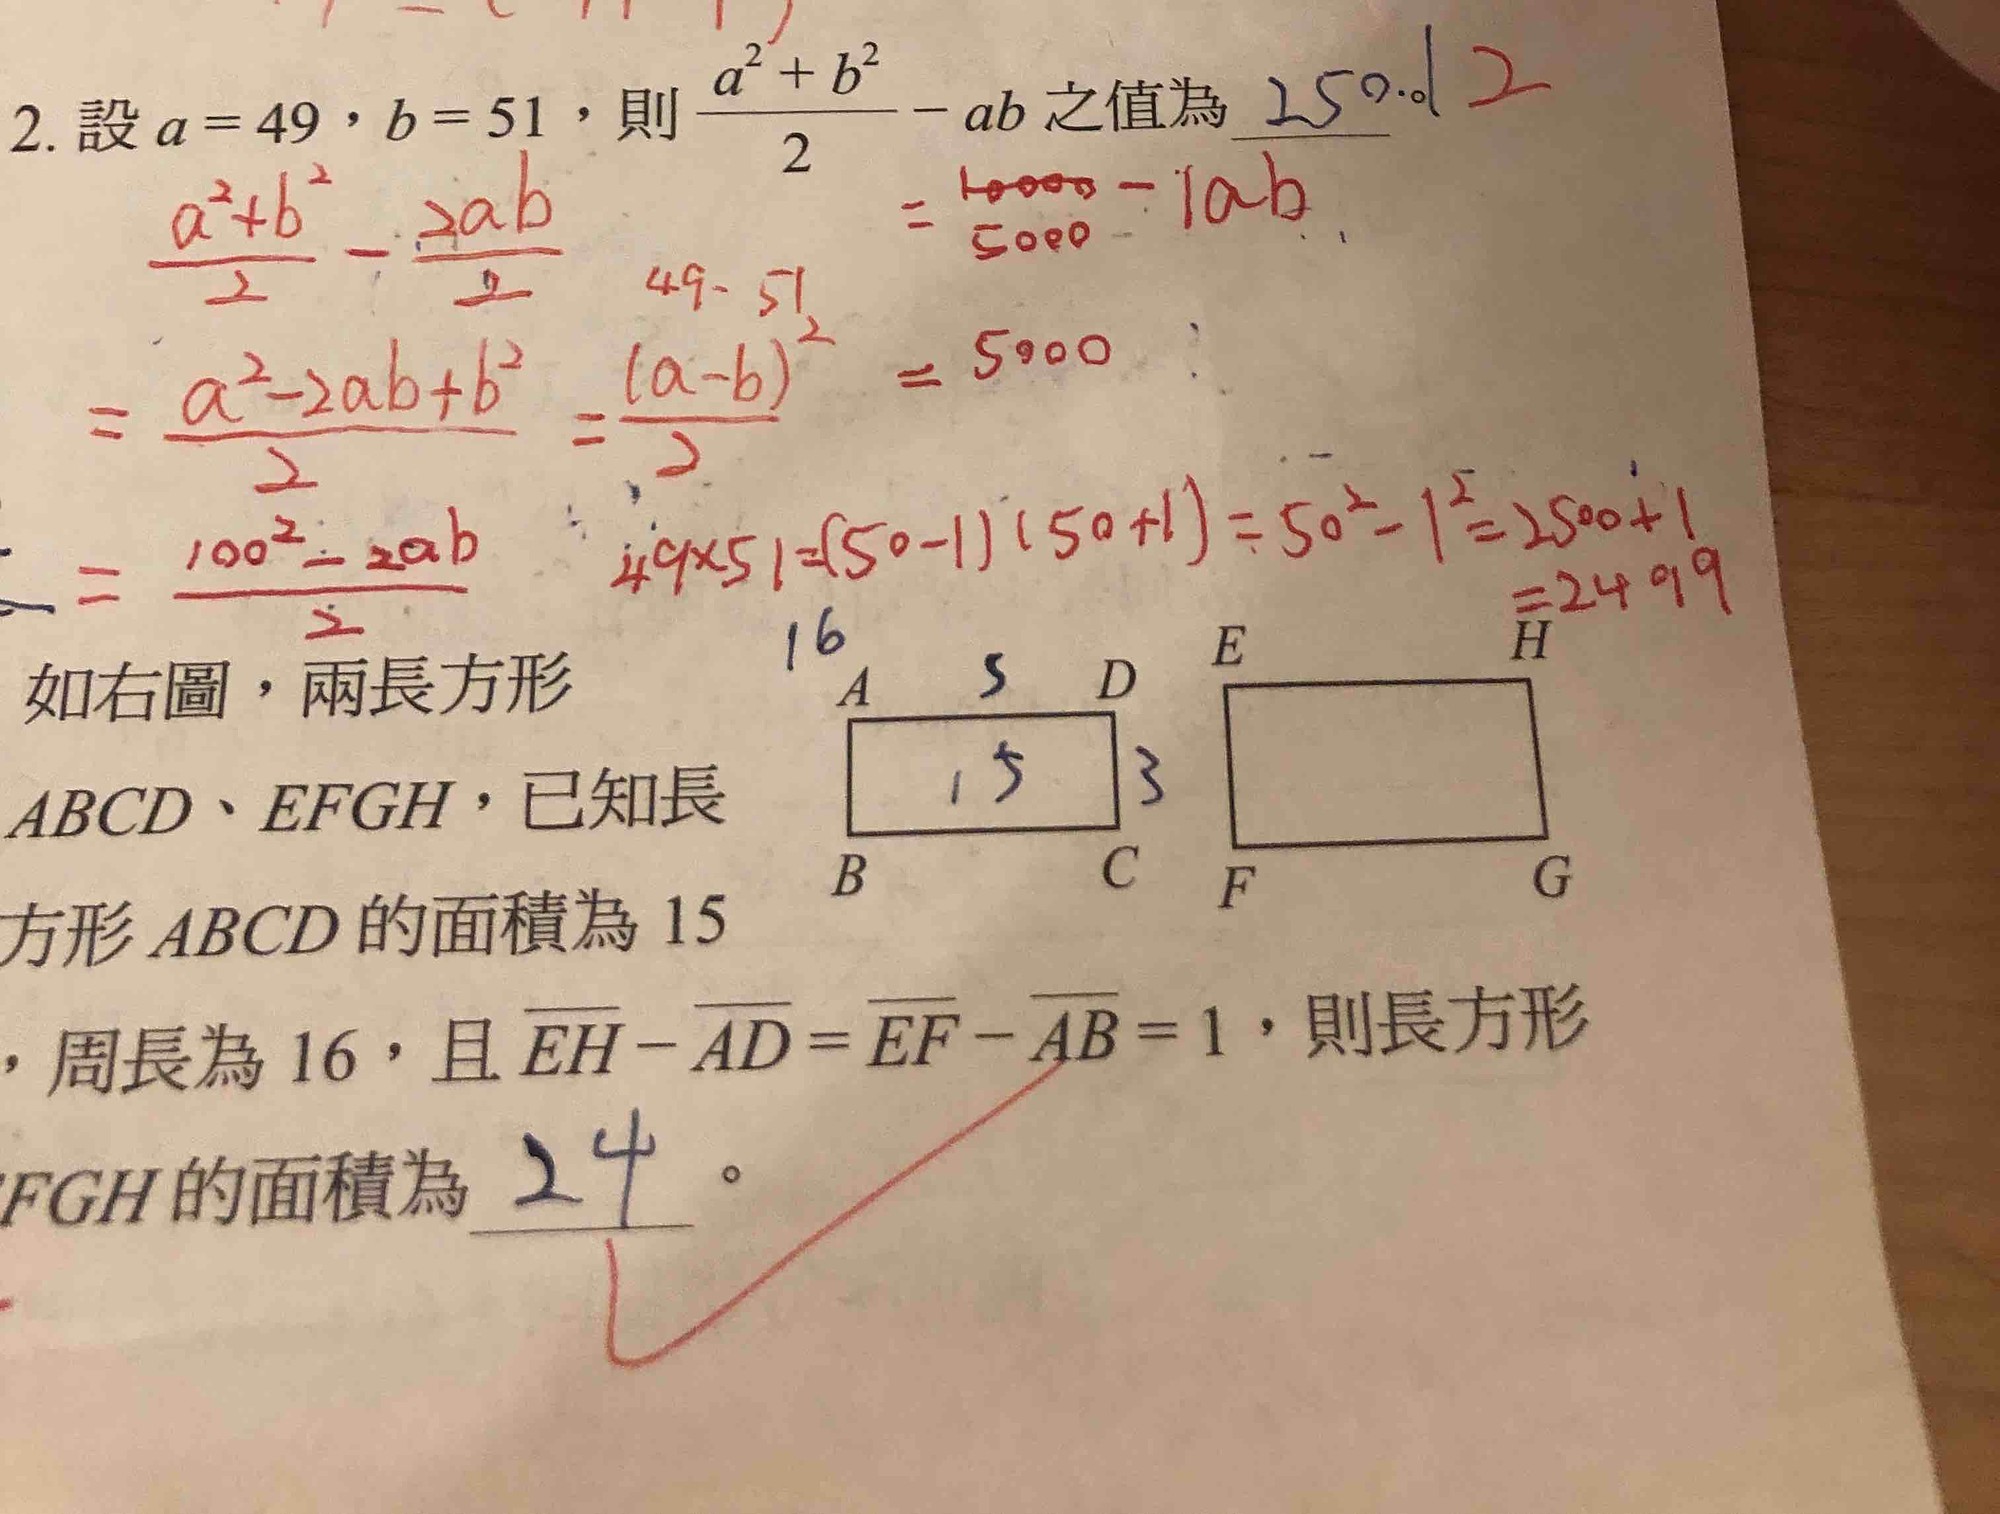 2. 設 a = 49，b = 51，則 (a² + b²)/2 − ab 之值為 250.. 2
(a²+b²)/2 − 2ab/2
= 10000 − 1ab
5000
49- 51
= (a²−2ab+b²)/2 = (a−b)²/2 = 5000
= (100² − 2ab)/2
49×51=(50−1)(50+1) = 50² − 1² = 2500+1
=2499
16
如右圖，兩長方形
ABCD、EFGH，已知長
方形 ABCD 的面積為 15
，周長為 16，且 E̅H̅ − A̅D̅ = E̅F̅ − A̅B̅ = 1，則長方形
FGH 的面積為 24 。
A 5 D E H
15 3
B C F G